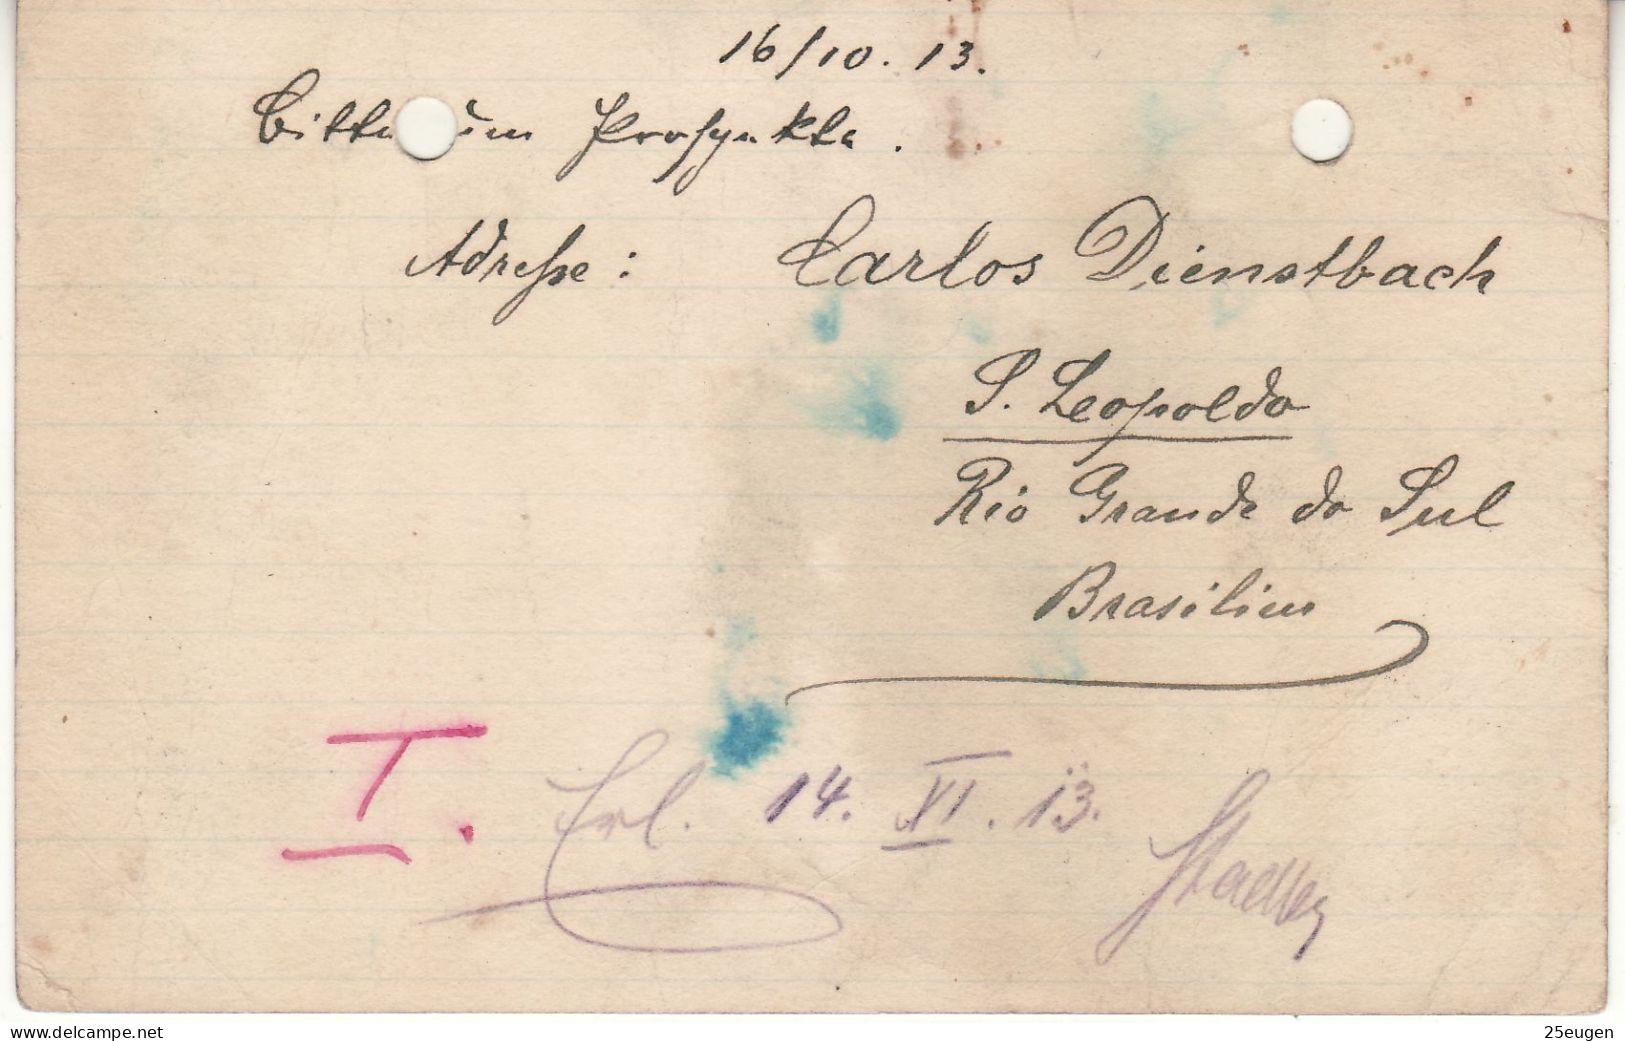 16/10.13.
Bitte um Prospekte.
Adresse: Carlos Dienstbach
S. Leopoldo
Rio Grande do Sul
Brasilien
I.
Erl. 14. XI. 13.
www.delcampe.net
25eugen